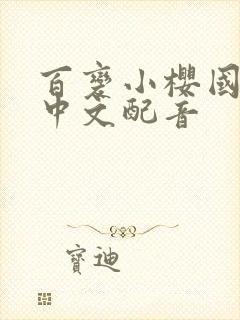 百变小櫻國
中文配音
寶迪